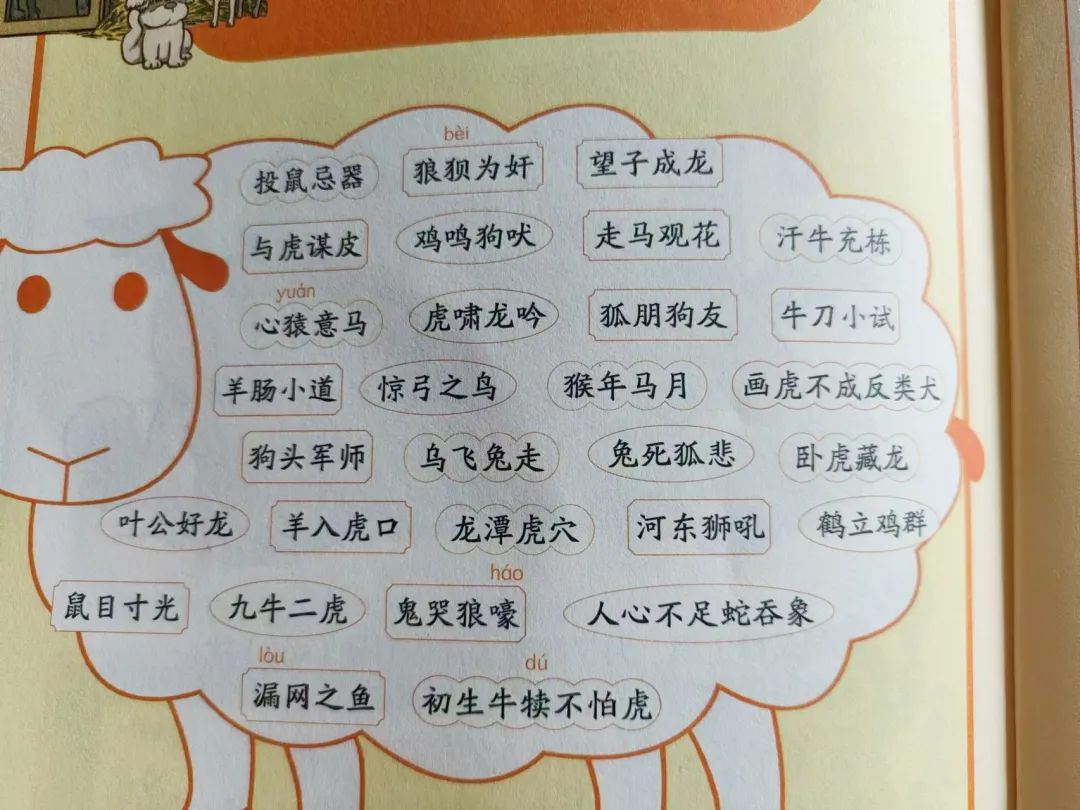 bèi
投鼠忌器 狼狈为奸 望子成龙
与虎谋皮 鸡鸣狗吠 走马观花 汗牛充栋
yuán
心猿意马 虎啸龙吟 狐朋狗友 牛刀小试
羊肠小道 惊弓之鸟 猴年马月 画虎不成反类犬
狗头军师 乌飞兔走 兔死狐悲 卧虎藏龙
叶公好龙 羊入虎口 龙潭虎穴 河东狮吼 鹤立鸡群
háo
鼠目寸光 九牛二虎 鬼哭狼嚎 人心不足蛇吞象
lòu dú
漏网之鱼 初生牛犊不怕虎